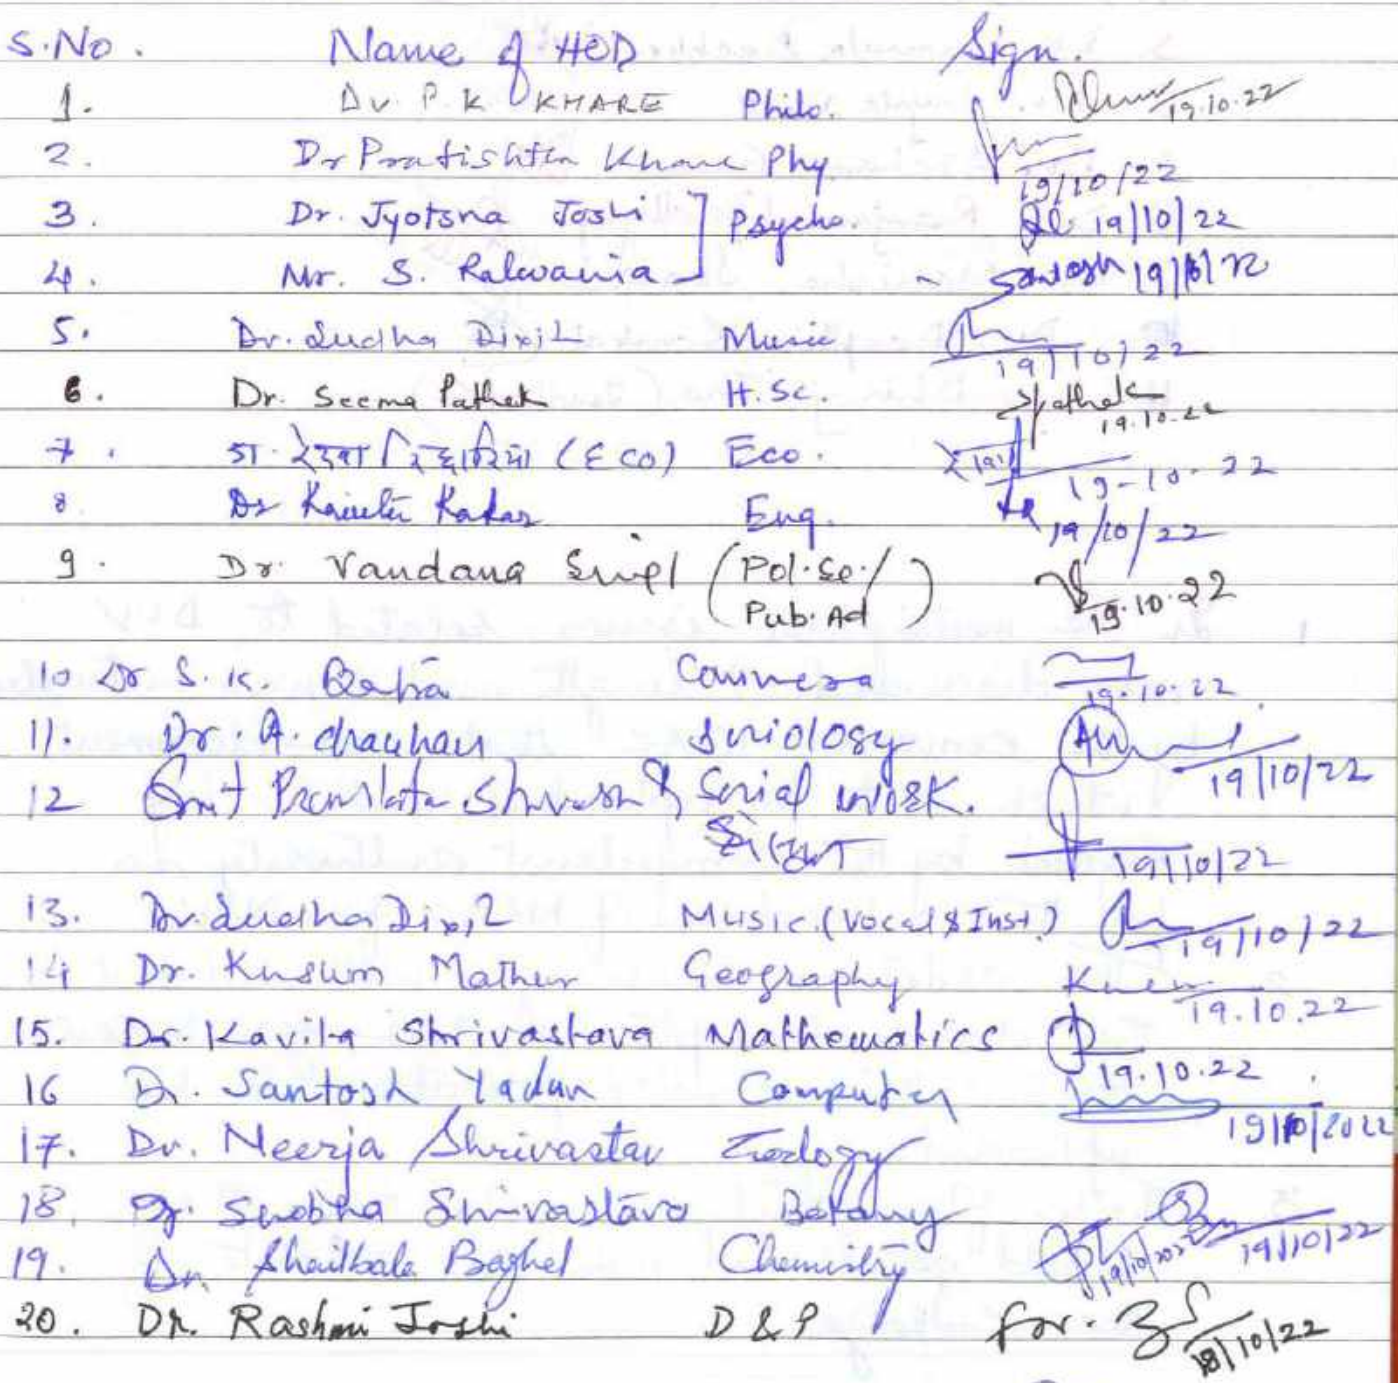 S.No. Name of HOD Sign.
1. Dr. P.K KHARE Philo. 19.10.22
2. Dr Pratishtha Khare Phy 19/10/22
3. Dr. Jyotsna Joshi Psycho. 19/10/22
4. Mr. S. Ralwania Santosh 19/10/22
5. Dr. Sudha Dixit Music 19/10/22
6. Dr. Seema Pathak H.Sc. SPathak 19.10.22
7. डा. (ECO) Eco. 19-10-22
8 Dr Kavita Kakar Eng. 19/10/22
9. Dr. Vandana Singh (Pol.Sc./
Pub.Ad) 19.10.22
10 Dr S.K. 19.10.22
11. Dr. A. Chauhan Sociology 19/10/22
12 Smt Premlata Social work.
19/10/22
13. Dr. Sudha Dixit Music.(Vocal & Inst.) 19/10/22
14 Dr. Kusum Mathur Geography 19.10.22
15. Dr. Kavita Shrivastava Mathematics 19.10.22
16 Dr. Santosh Yadav Computer 19/10/2022
17. Dr. Neerja Shrivastav Zoology
18. Dr. Shobha Shrivastava Botany 19/10/22
19. Dr. Shailbala Baghel Chemistry 19/10/2022
20. Dr. Rashmi Joshi D & P for. 19/10/22